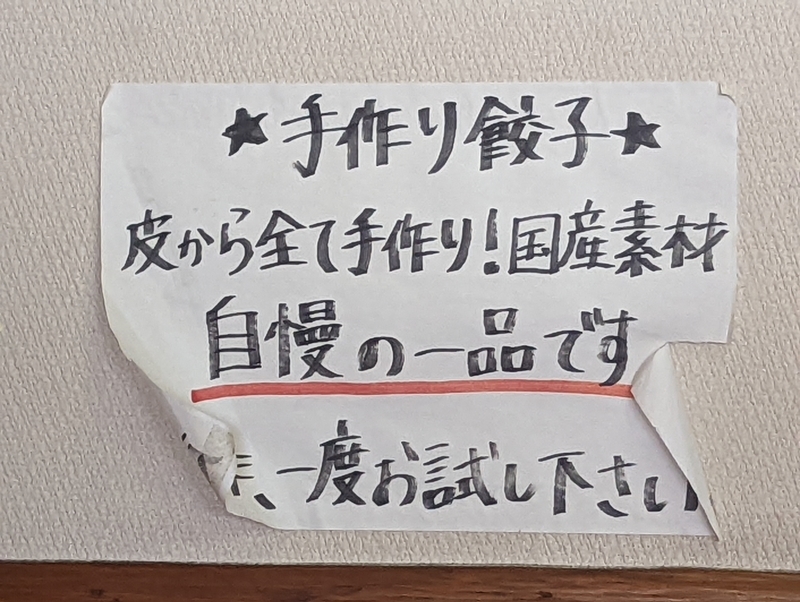 ★手作り餃子★
皮から全て手作り!国産素材
自慢の一品です
、一度お試し下さい